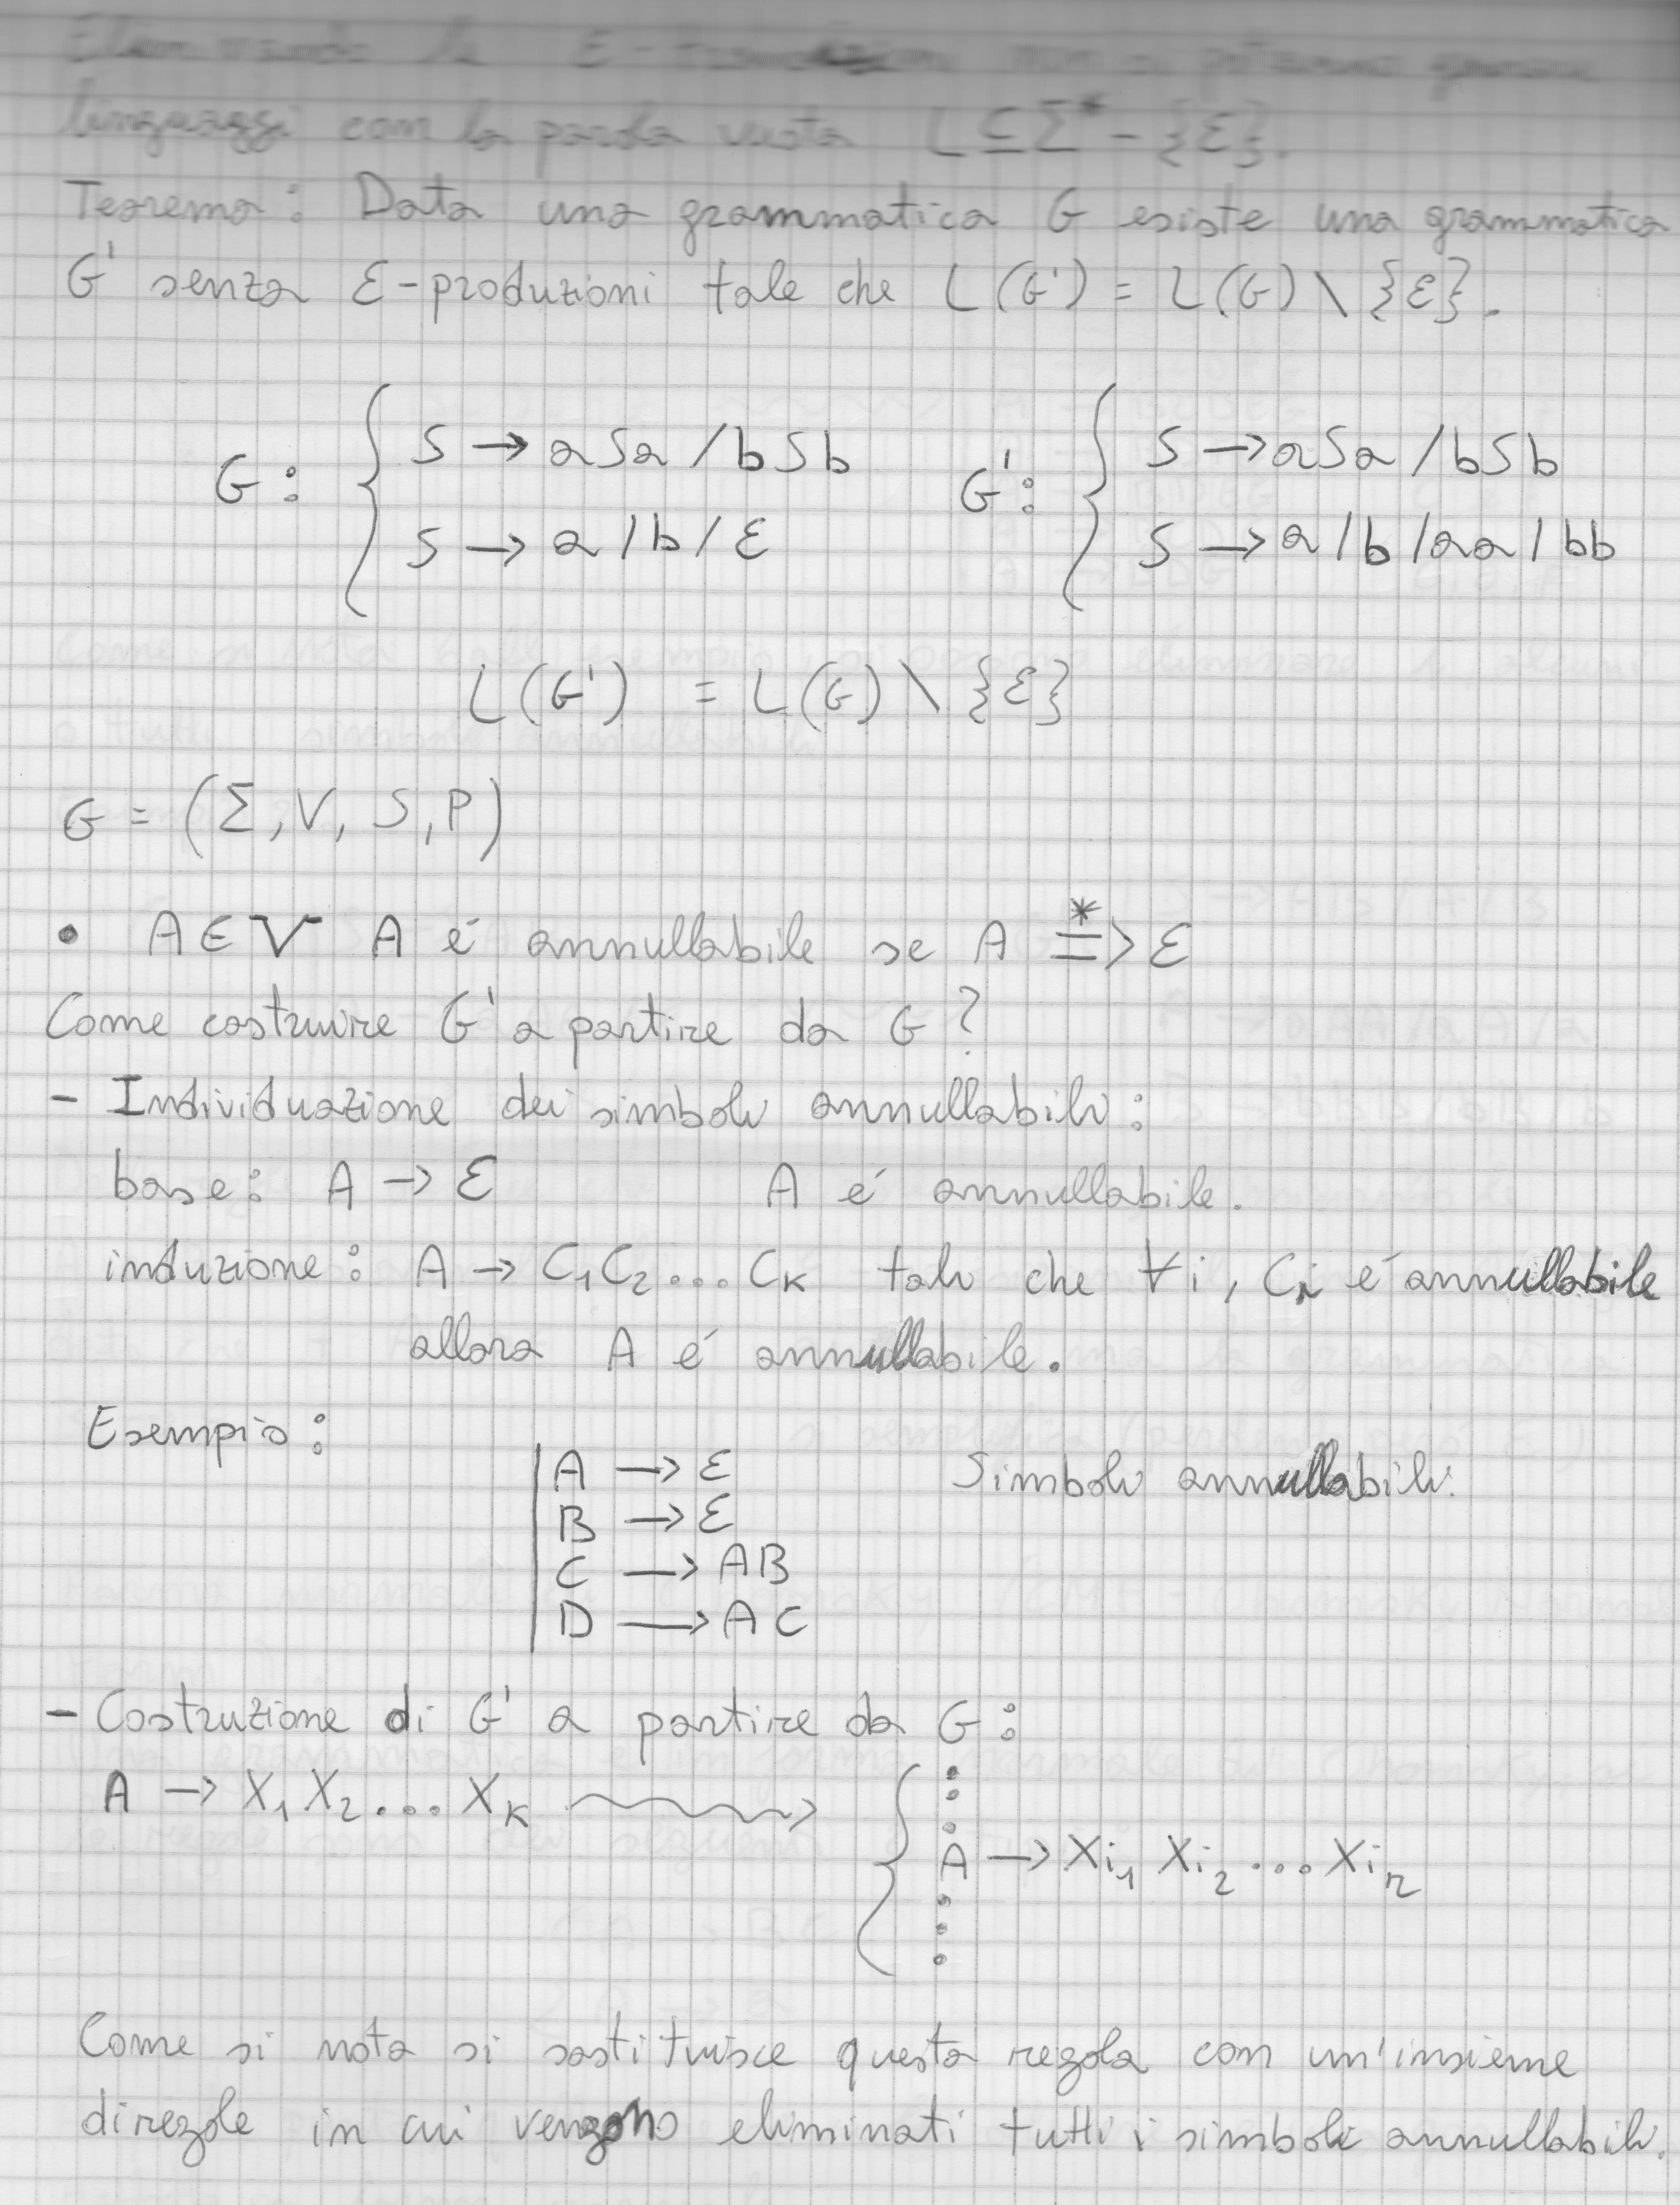 Eliminando le ε-produzioni non si potranno generare
linguaggi con la parola vuota L ⊆ Σ* - {ε}.
Teorema: Data una grammatica G esiste una grammatica
G' senza ε-produzioni tale che L(G') = L(G) \ {ε}.
G: { S → aSa / bSb G': { S → aSa / bSb
S → a / b / ε S → a / b / aa / bb
L(G') = L(G) \ {ε}
G = (Σ, V, S, P)
• A ∈ V A é annullabile se A *=> ε
Come costruire G' a partire da G?
- Individuazione dei simboli annullabili:
base: A → ε A é annullabile.
induzione: A → C₁C₂...Cₖ tali che ∀i, Cᵢ é annullabile
allora A é annullabile.
Esempio:
A → ε Simboli annullabili:
B → ε
C → AB
D → AC
- Costruzione di G' a partire da G:
A → X₁X₂....Xₖ ⟿ { A → Xi₁ Xi₂ ... Xiᵣ
Come si nota si sostituisce questa regola con un'insieme
di regole in cui vengono eliminati tutti i simboli annullabili.